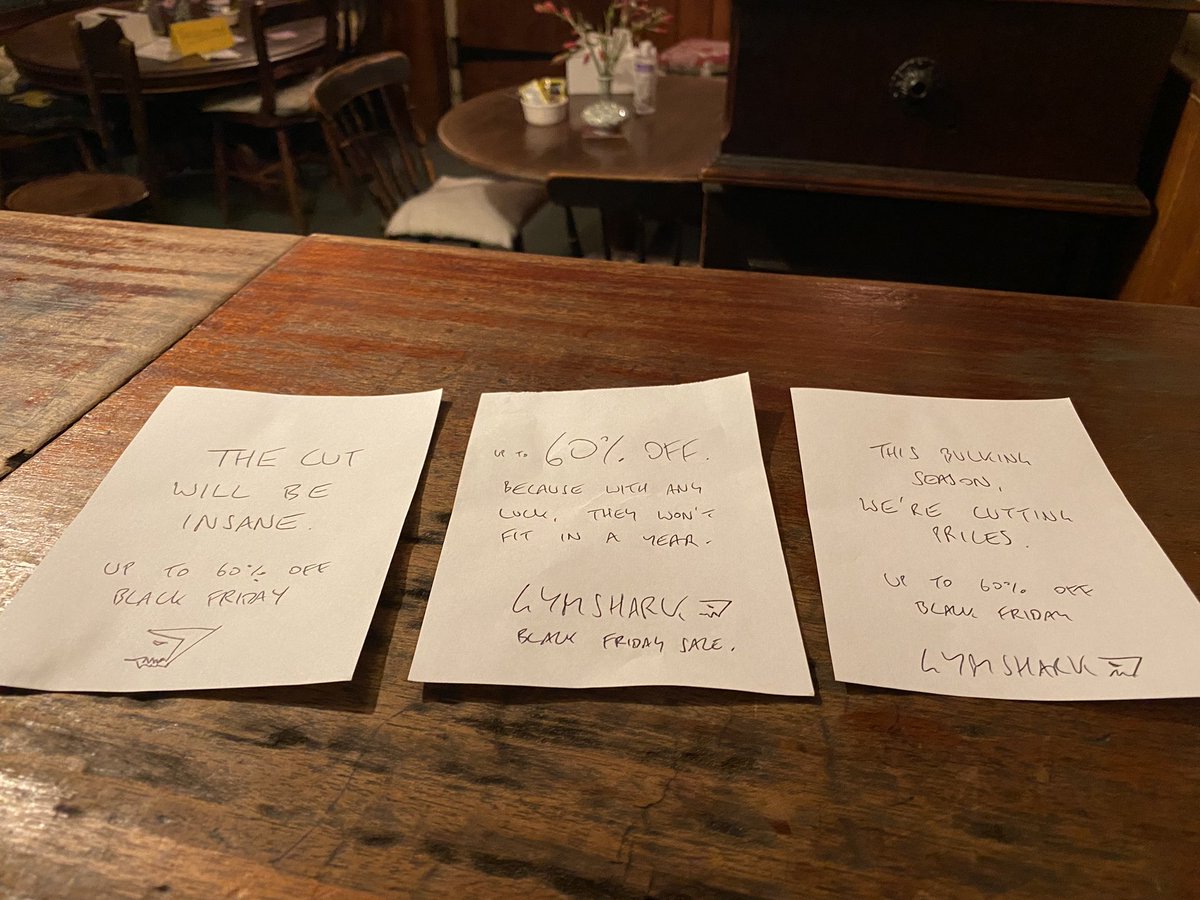 THE CUT
WILL BE
INSANE.
UP TO 60% OFF
BLACK FRIDAY
UP TO 60% OFF.
BECAUSE WITH ANY
LUCK, THEY WON'T
FIT IN A YEAR.
GYMSHARK
BLACK FRIDAY SALE.
THIS BULKING
SEASON,
WE'RE CUTTING
PRICES.
UP TO 60% OFF
BLACK FRIDAY
GYMSHARK